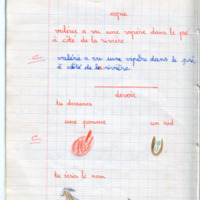 copie
valérie a vu une vipère dans le pré
à côté de la rivière
c. valérie a vu une vipère dans le pré,
à côté de la rivière.
devoir
tu dessines
c.
une pomme un nid
tu écris le nom